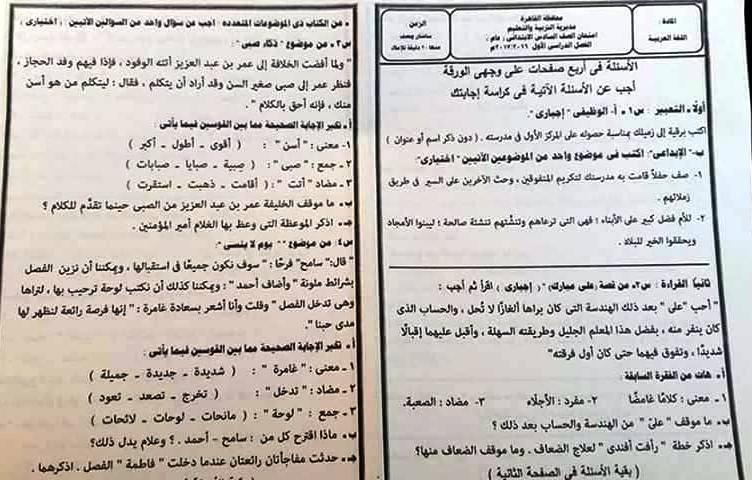 المادة :
اللغة العربية
محافظة القاهرة
مديرية التربية والتعليم
امتحان الصف السادس الابتدائي ( عام )
الفصل الدراسي الأول ٢٠١٦/ ٢٠١٧م
الزمن
ساعتان ونصف
الأسئلة فى أربع صفحات على وجهى الورقة
أجب عن الأسئلة الآتية فى كراسة إجابتك
أولًا ـ التعبير : س١ ـ أ- الوظيفى " إجبارى ".
اكتب برقية إلى زميلك بمناسبة حصوله على المركز الأول فى مدرسته . ( دون ذكر اسم أو عنوان )
ب- "الإبداعى": اكتب فى موضوع واحد من الموضوعين الآتيين " اختيارى":
١- صف حفلاً قامت به مدرستك لتكريم المتفوقين ، وحث الآخرين على السير فى طريق
زملائهم .
٢- للأم فضل كبير على الأبناء ؛ فهى التى ترعاهم وتنشِّئهم تنشئة صالحة ؛ ليبنوا الأمجاد
ويحققوا الخير للبلاد .
ثانيًا القراءة : س٢ـ من قصة (على مبارك)" ( إجبارى ) اقرأ ثم أجب :
" أحب "على " بعد ذلك الهندسة التى كان يراها ألغازًا لا تُحل ، والحساب الذى
كان ينفر منه ، بفضل هذا المعلم الجليل وطريقته السهلة ، وأقبل عليهما إقبالًا
شديدًا ، وتفوق فيهما حتى كان أول فرقته"
أ- هات من الفقرة السابقة :
١ـ معنى : كلامًا غامضًا ٢- مفرد : الأجلّاء ٣- مضاد : الصعبة.
ب- ما موقف " علىّ " من الهندسة والحساب بعد ذلك ؟
جـ- اذكر خطة " رأفت أفندى " لعلاج الضعاف . وما موقف الضعاف منها؟
( بقية الأسئلة فى الصفحة الثانية )
• من الكتاب ذى الموضوعات المتعددة : أجب عن سؤال واحد من السؤالين الآتيين ( اختيارى )
س٣ ـ من موضوع " ذكاء صبى " :
" ولما أفضت الخلافة إلى عمر بن عبد العزيز أتته الوفود ، فإذا فيهم وفد الحجاز ،
فنظر عمر إلى صبى صغير السن وقد أراد أن يتكلم ، فقال : ليتكلم من هو أسن
منك ، فإنه أحق بالكلام " .
أ ـ تخير الإجابة الصحيحة مما بين القوسين فيما يأتى :
١- معنى : " أسن " : ( أقوى ـ أطول ـ أكبر )
٢ـ جمع : " صبى " : ( صِبية ـ صبايا ـ صبابات )
٣ـ مضاد " أتت " : ( أقامت ـ ذهبت ـ استقرت )
ب- ما موقف الخليفة عمر بن عبد العزيز من الصبى حينما تقدَّم للكلام ؟
جـ ـ اذكر الموعظة التى وعظ بها الغلام أمير المؤمنين .
س٤: من موضوع " يوم لا ينسى " :
" قال:" سامح" فرحًا : " سوف نكون جميعًا فى استقبالها ، ويمكننا أن نزين الفصل
بشرائط ملونة " وأضاف أحمد " : ويمكننا كذلك أن نكتب لوحة ترحيب بها ، لتراها
وهى تدخل الفصل " وقلت وأنا أشعر بسعادة غامرة : " إنها فرصة رائعة لنظهر لها
مدى حبنا ".
أ ـ تخير الإجابة الصحيحة مما بين القوسين فيما يأتى :
١ـ معنى : " غامرة " : ( شديدة ـ جديدة ـ جميلة )
٢ـ مضاد : " تدخل " : ( تخرج ـ تصعد ـ تعود )
٣ـ جمع : " لوحة " : ( مانحات ـ لوحات ـ لائحات )
ب- ماذا اقترح كل من : سامح ـ أحمد . ؟ وعلام يدل ذلك؟
جـ- حدثت مفاجأتان رائعتان عندما دخلت " فاطمة " الفصل . اذكرهما .